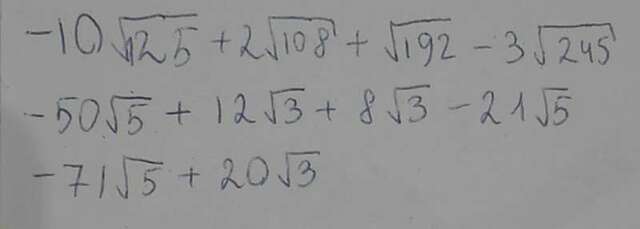 -10√125 + 2√108 + √192 - 3√245
-50√5 + 12√3 + 8√3 - 21√5
-71√5 + 20√3